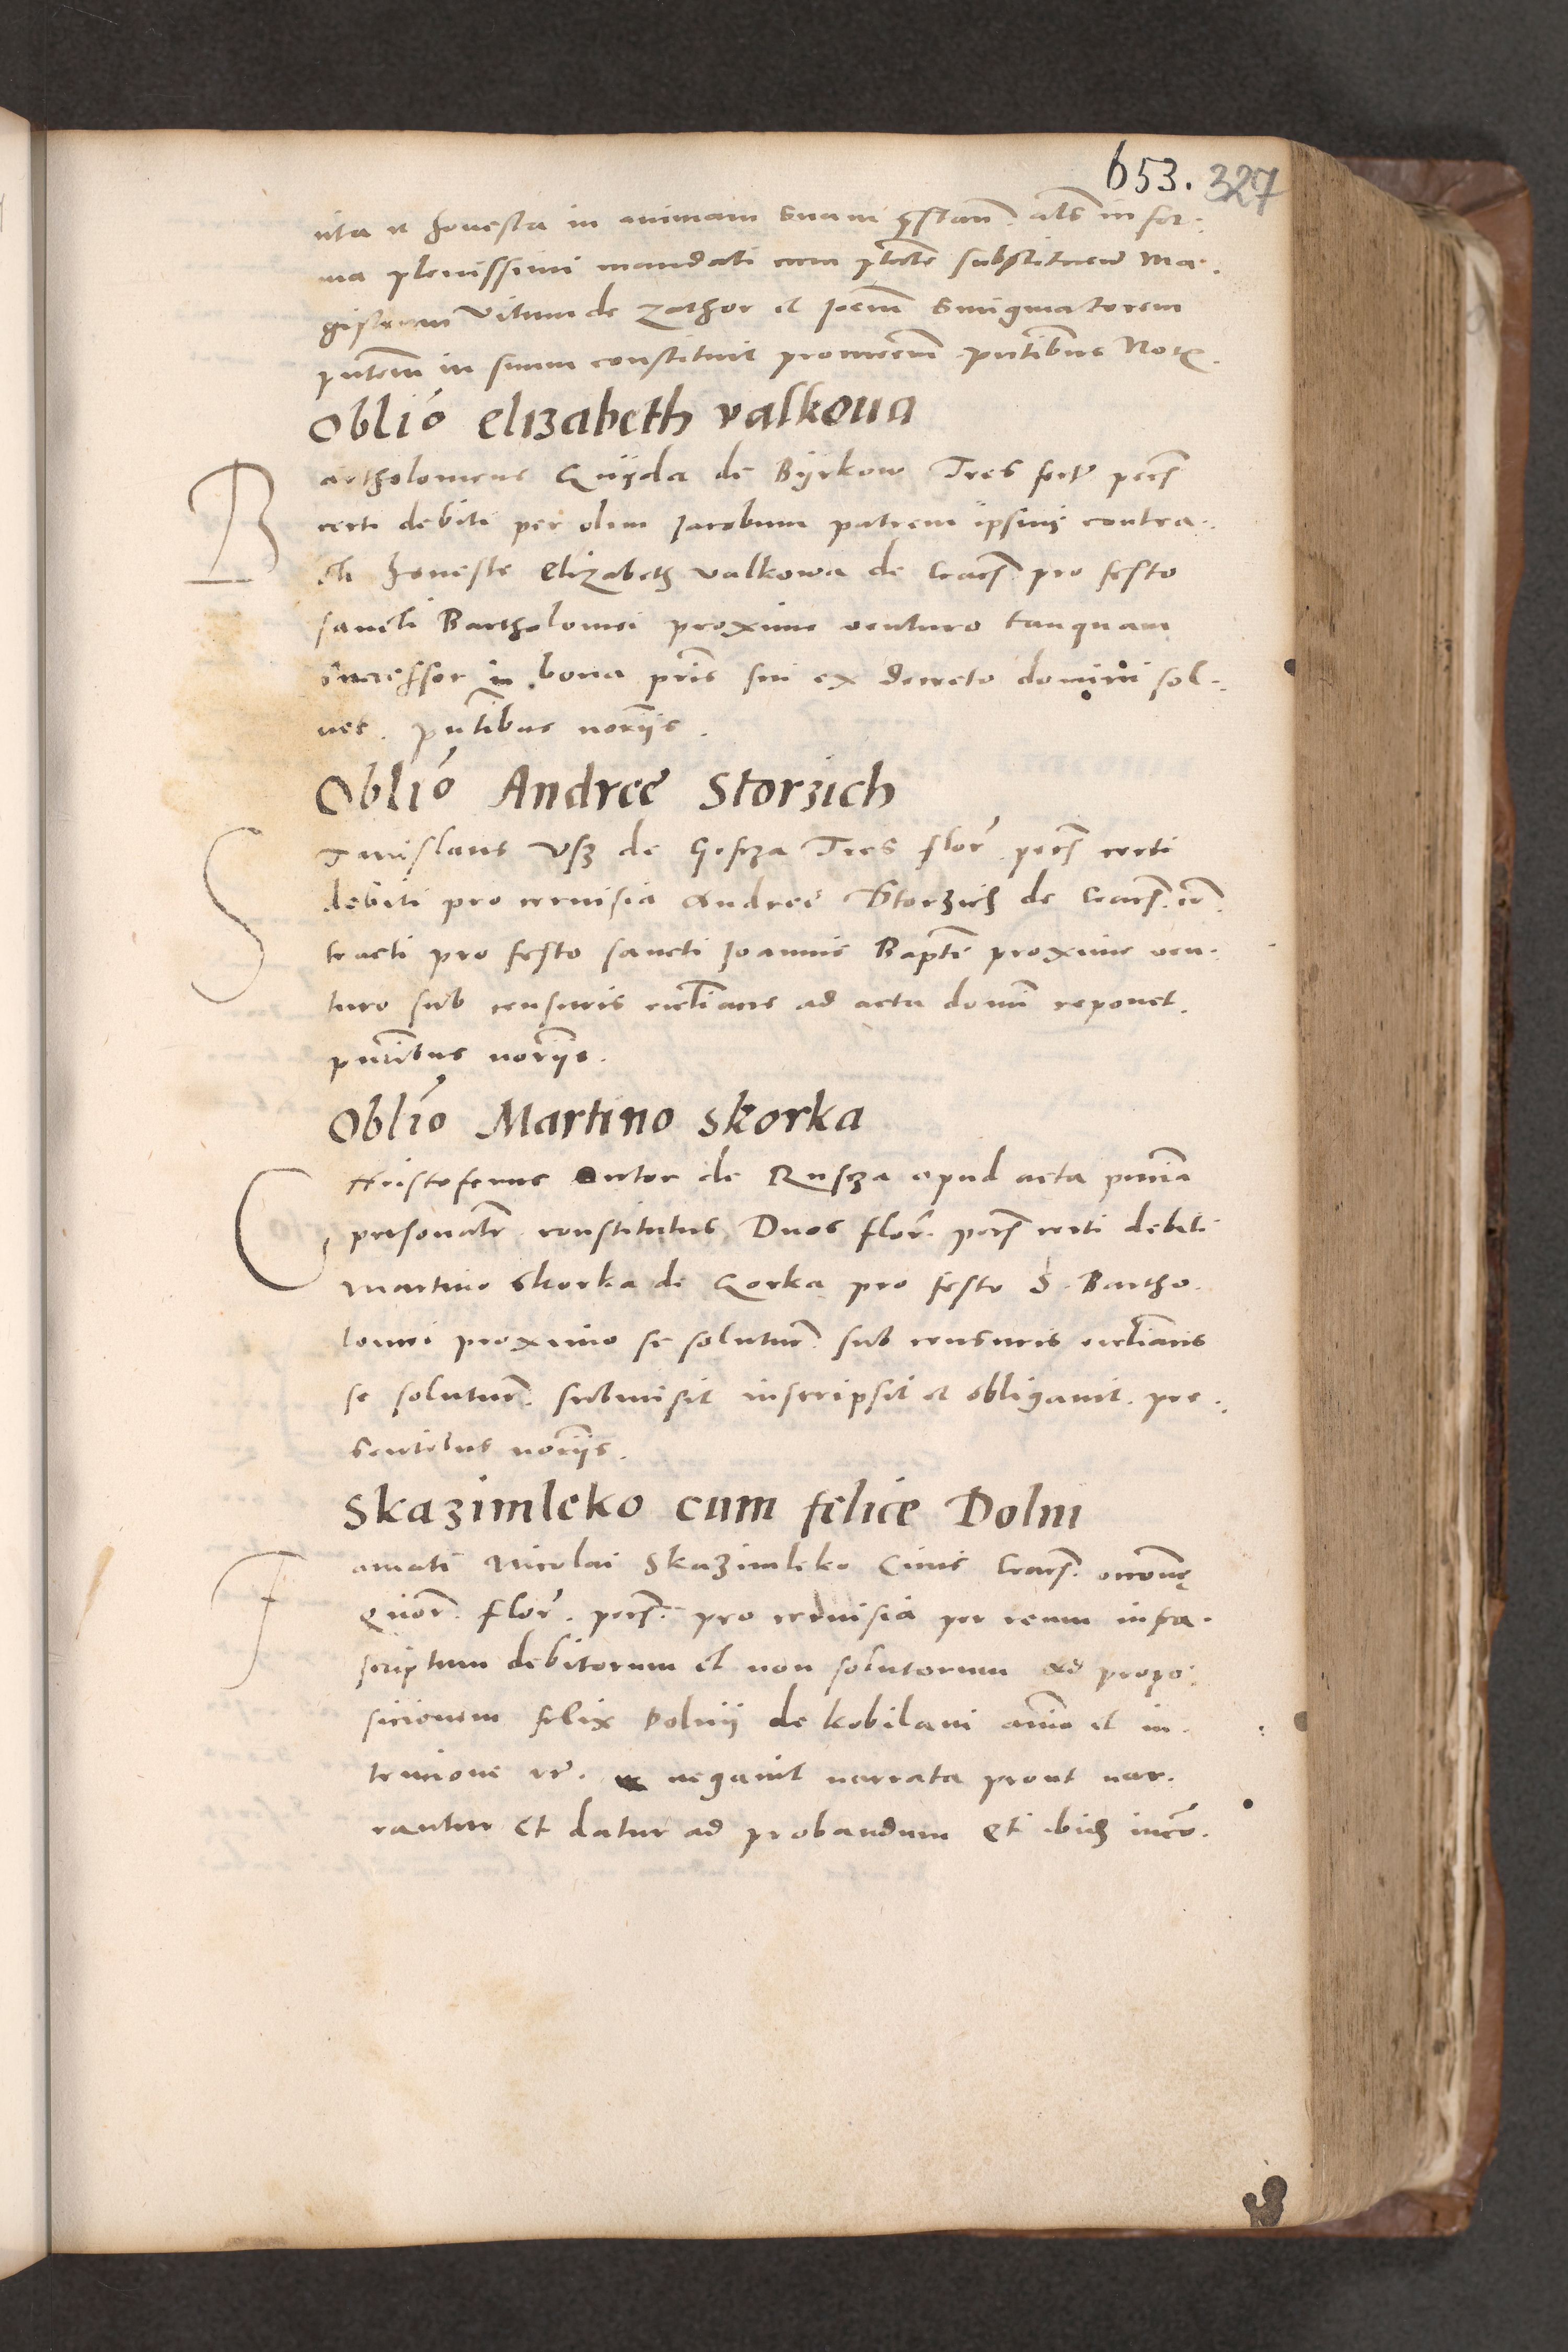 653. 327
cita et honesta in animam suam prestan. als in for-
ma plenissimi mandati cum ptate substituend Ma-
gistrum Vitum de Zathor et Joem Smigmatorem
pntem in suum constituit procurem pntibus Nots.
Oblio elizabeth valkoua
Bartholomeus Gnyda de Byrkow Tres fert pecs
certi debiti per olim Jacobum patrem ipsius contra-
cti honeste Elizabeth valkowa de Cracs. pro festo
sancti Bartholomei proxime venturo tanquam
Successor in bona pris sui ex decreto domini sol-
uet. pntibus noriis.
Oblio Andree Storzich
Stanislaus Vsz de Tres flor. pecs certi
debiti pro ceruisia Andree Storzich de Cracs. con-
tracti pro festo sancti Joannis Bapte proxime ven-
turo sub censuris ecclianis ad acta domi reponet.
pntibus noriis.
Oblio Martino skorka
Cristoferus Sutor de Rusza apud acta pntia
personalr constitutus Duos flor. pecs certi debiti
Martino Skorka de Gorka pro festo S. Bartho-
lomei proximo se soluturum. sub censuris ecclianis
se soluturum. submisit inscripsit et obligauit. pre-
sentibus noriis.
Skazimleko cum felice Dolni
Famati Nicolai Skazimleko Ciuis Cracs.
Quor. flor. pecs. pro ceruisia per reum infra-
scriptum debitorum et non solutorum ad propo-
sicionem felix Dolnij de kobilani animo et in-
tencione rr. negauit narrata prout nar-
rantur Et datur ad probandum Et ibidem